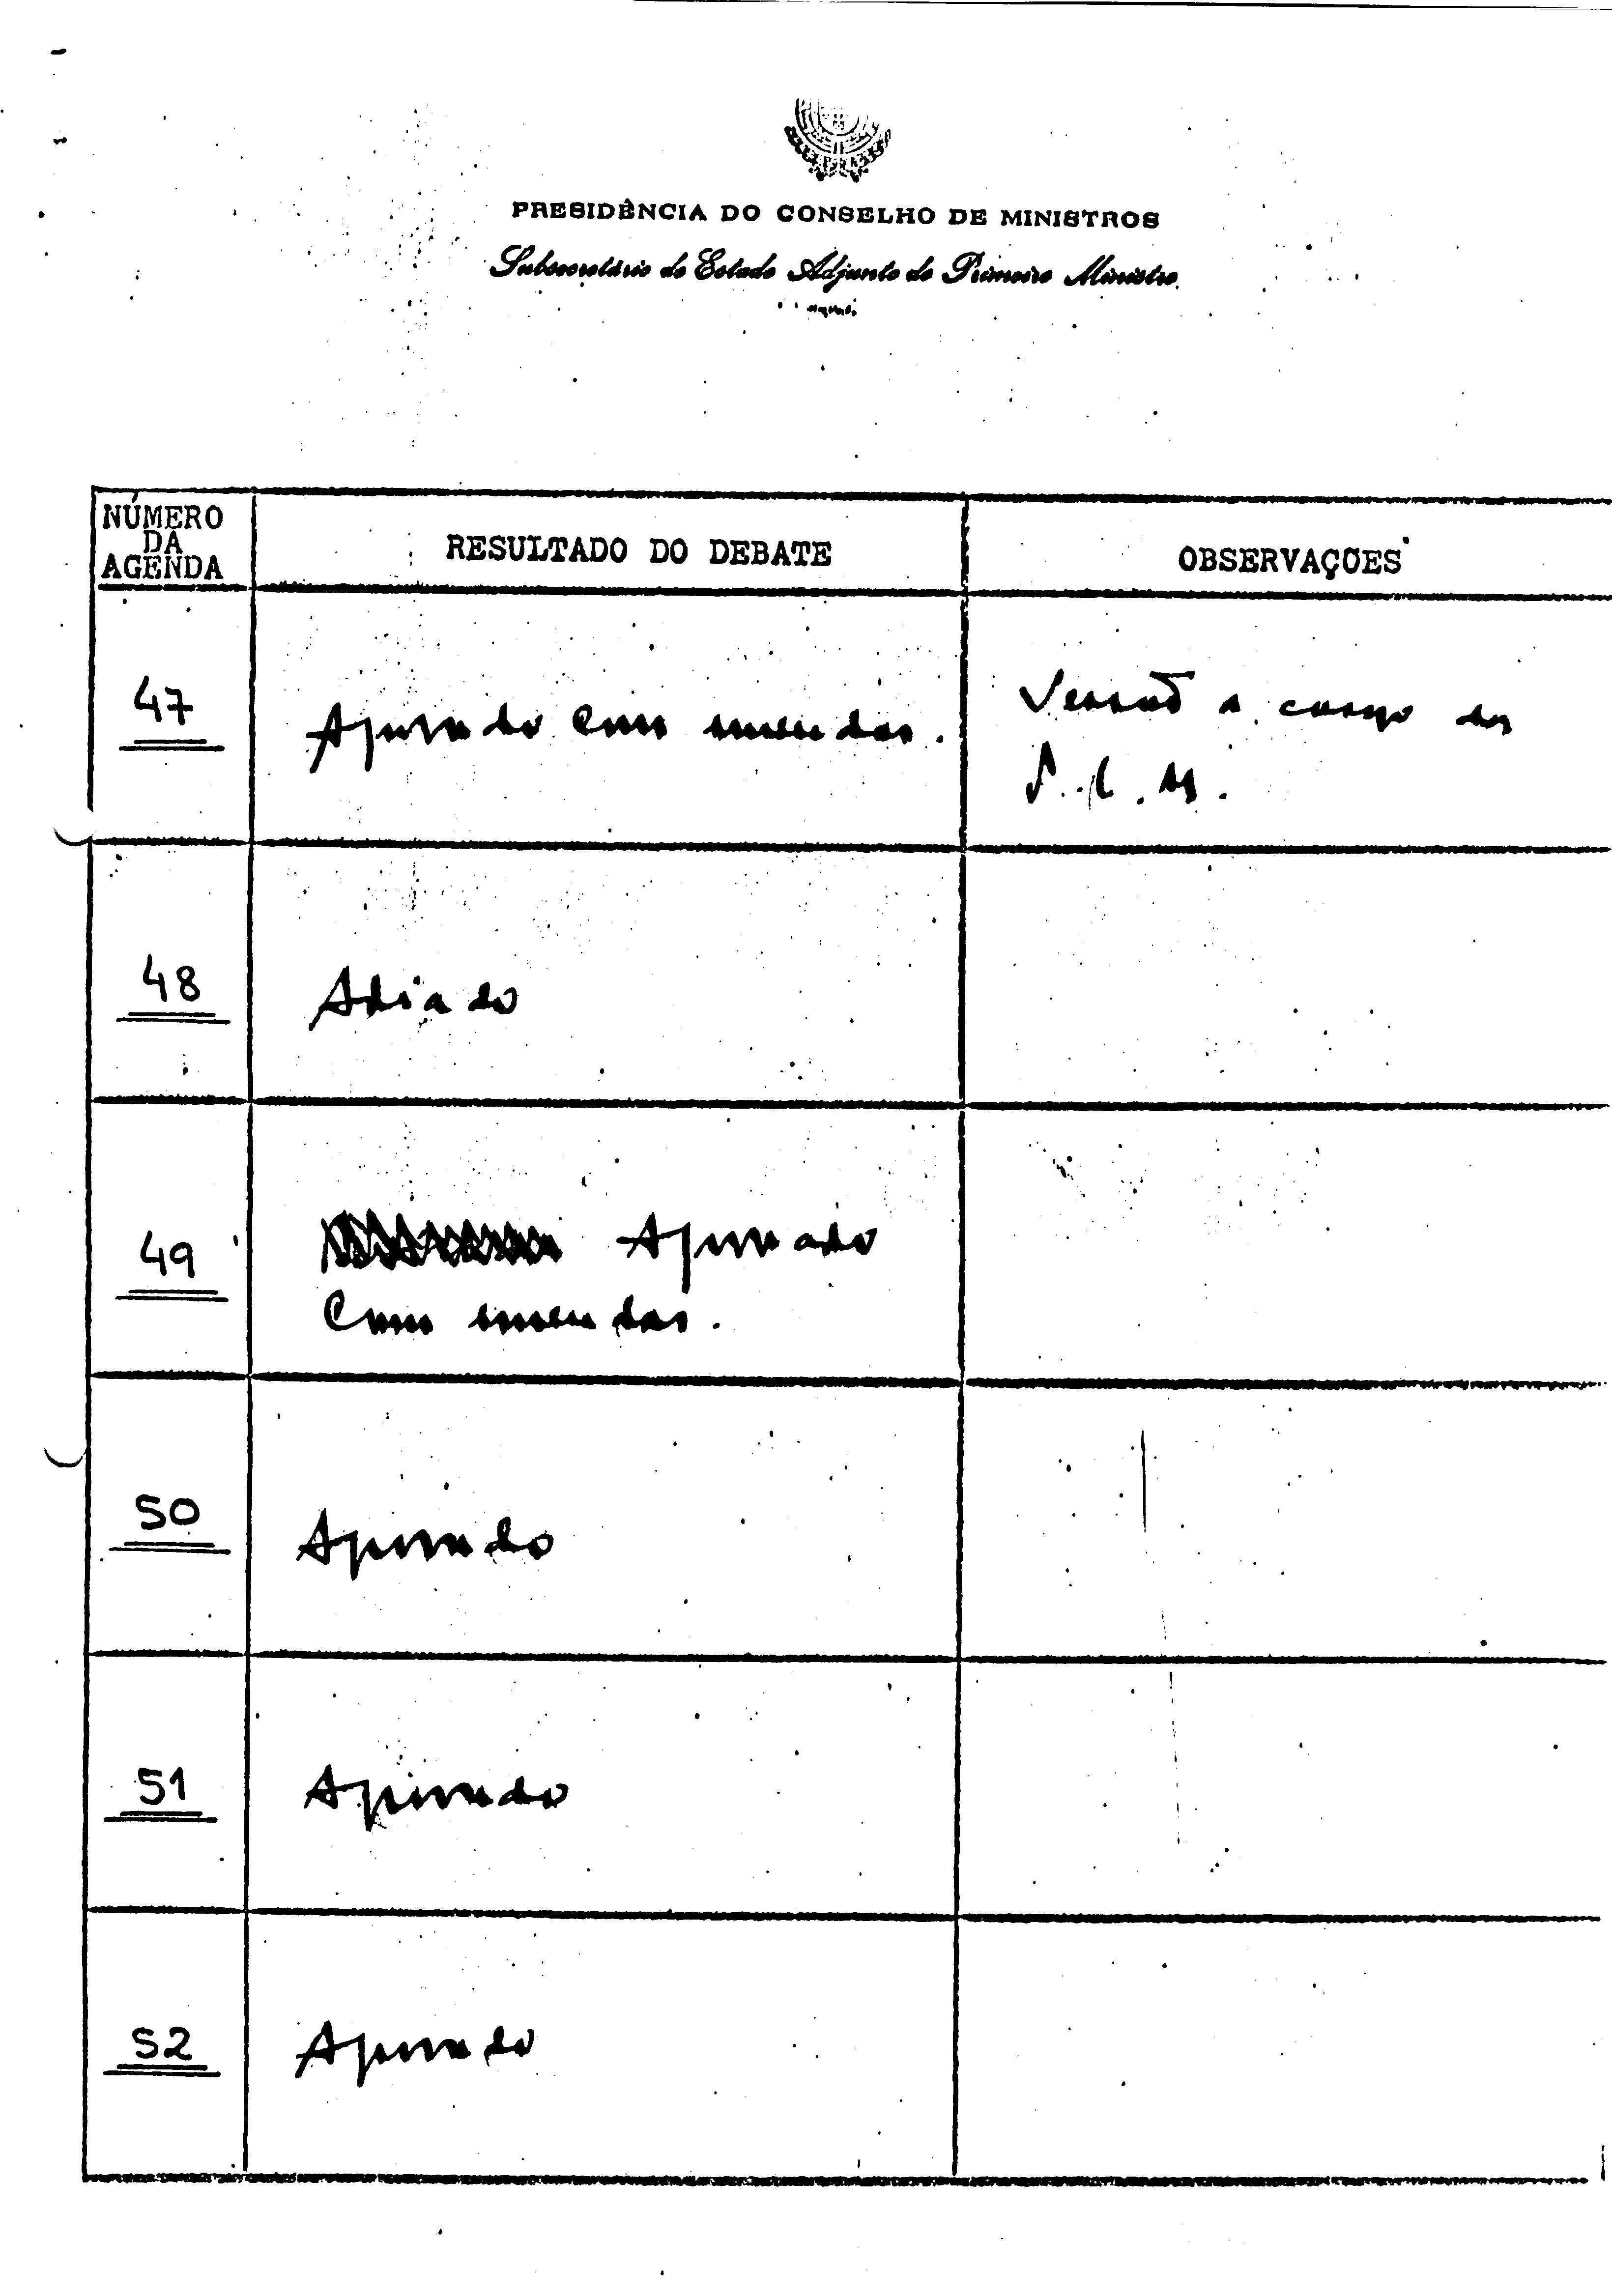 PRESIDÊNCIA DO CONSELHO DE MINISTROS
Subsecretário de Estado Adjunto do Primeiro Ministro
NÚMERO DA AGENDA
RESULTADO DO DEBATE
OBSERVAÇÕES
47
Aprovado com emendas.
Versão a cargo da
P.C.M.
48
Adiado
49
Aprovado
com emendas.
50
Aprovado
51
Aprovado
52
Aprovado